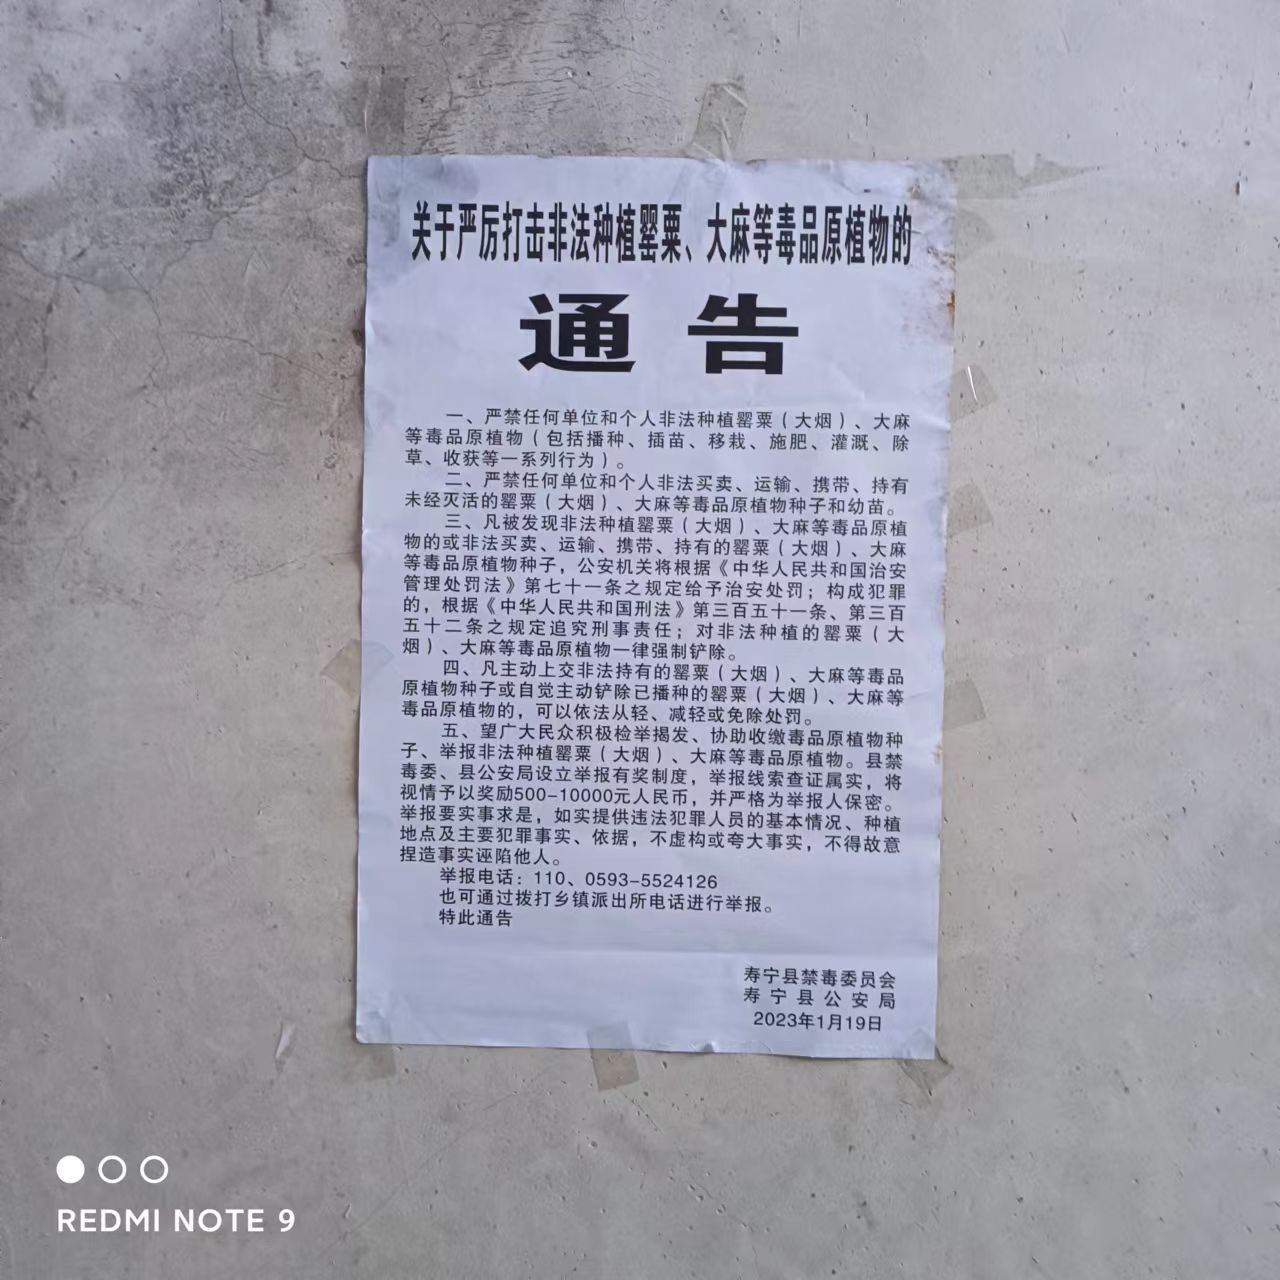 关于严厉打击非法种植罂粟、大麻等毒品原植物的
通告
一、严禁任何单位和个人非法种植罂粟（大烟）、大麻
等毒品原植物（包括播种、插苗、移栽、施肥、灌溉、除
草、收获等一系列行为）。
二、严禁任何单位和个人非法买卖、运输、携带、持有
未经灭活的罂粟（大烟）、大麻等毒品原植物种子和幼苗。
三、凡被发现非法种植罂粟（大烟）、大麻等毒品原植
物的或非法买卖、运输、携带、持有的罂粟（大烟）、大麻
等毒品原植物种子，公安机关将根据《中华人民共和国治安
管理处罚法》第七十一条之规定给予治安处罚；构成犯罪
的，根据《中华人民共和国刑法》第三百五十一条、第三百
五十二条之规定追究刑事责任；对非法种植的罂粟（大
烟）、大麻等毒品原植物一律强制铲除。
四、凡主动上交非法持有的罂粟（大烟）、大麻等毒品
原植物种子或自觉主动铲除已播种的罂粟（大烟）、大麻等
毒品原植物的，可以依法从轻、减轻或免除处罚。
五、望广大民众积极检举揭发、协助收缴毒品原植物种
子、举报非法种植罂粟（大烟）、大麻等毒品原植物。县禁
毒委、县公安局设立举报有奖制度，举报线索查证属实，将
视情予以奖励500-10000元人民币，并严格为举报人保密。
举报要实事求是，如实提供违法犯罪人员的基本情况、种植
地点及主要犯罪事实、依据，不虚构或夸大事实，不得故意
捏造事实诬陷他人。
举报电话：110、0593-5524126
也可通过拨打乡镇派出所电话进行举报。
特此通告
寿宁县禁毒委员会
寿宁县公安局
2023年1月19日
REDMI NOTE 9